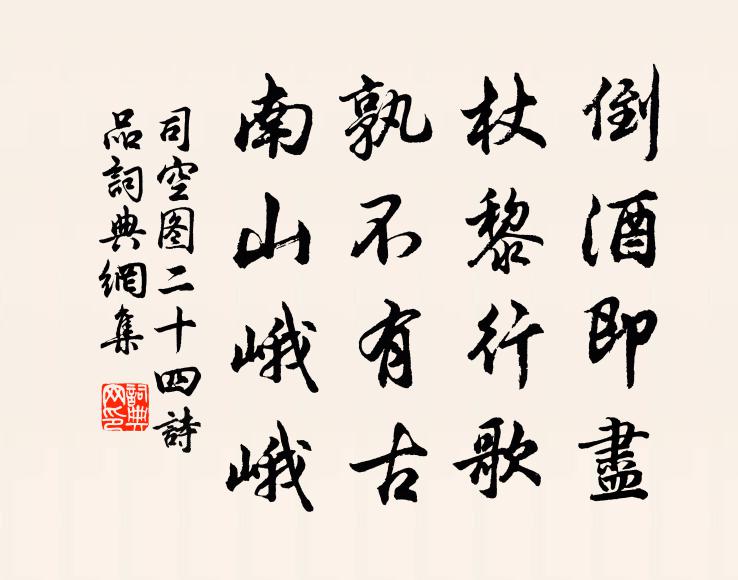 倒酒即盡
杖黎行歌
孰不有古
南山峨峨
司空图二十四詩
品詞典網集
詞典
网印